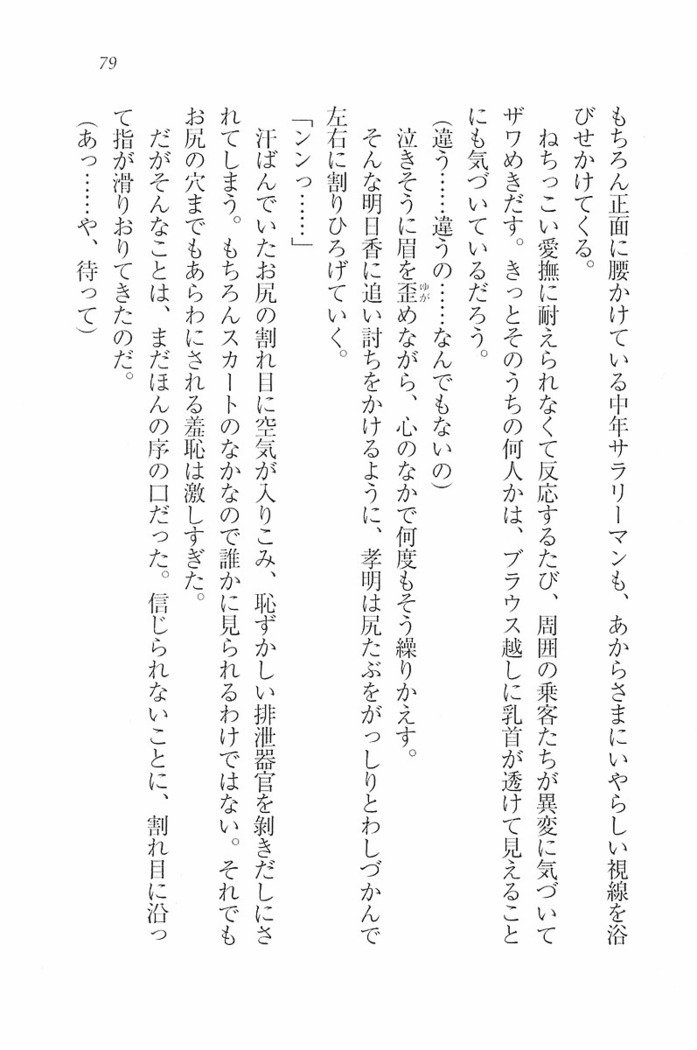 79
もちろん正面に腰かけている中年サラリーマンも、あからさまにいやらしい視線を浴
びせかけてくる。
ねちっこい愛撫に耐えられなくて反応するたび、周囲の乗客たちが異変に気づいて
ザワめきだす。きっとそのうちの何人かは、ブラウス越しに乳首が透けて見えること
にも気づいているだろう。
(違う……違うの……なんでもないの)
泣きそうに眉を歪めながら、心のなかで何度もそう繰りかえす。
ゆが
そんな明日香に追い討ちをかけるように、孝明は尻たぶをがっしりとわしづかんで
左右に割りひろげていく。
「ンンっ……」
汗ばんでいたお尻の割れ目に空気が入りこみ、恥ずかしい排泄器官を剝きだしにさ
れてしまう。もちろんスカートのなかなので誰かに見られるわけではない。それでも
お尻の穴までもあらわにされる羞恥は激しすぎた。
だがそんなことは、まだほんの序の口だった。信じられないことに、割れ目に沿っ
て指が滑りおりてきたのだ。
(あっ……や、待って)